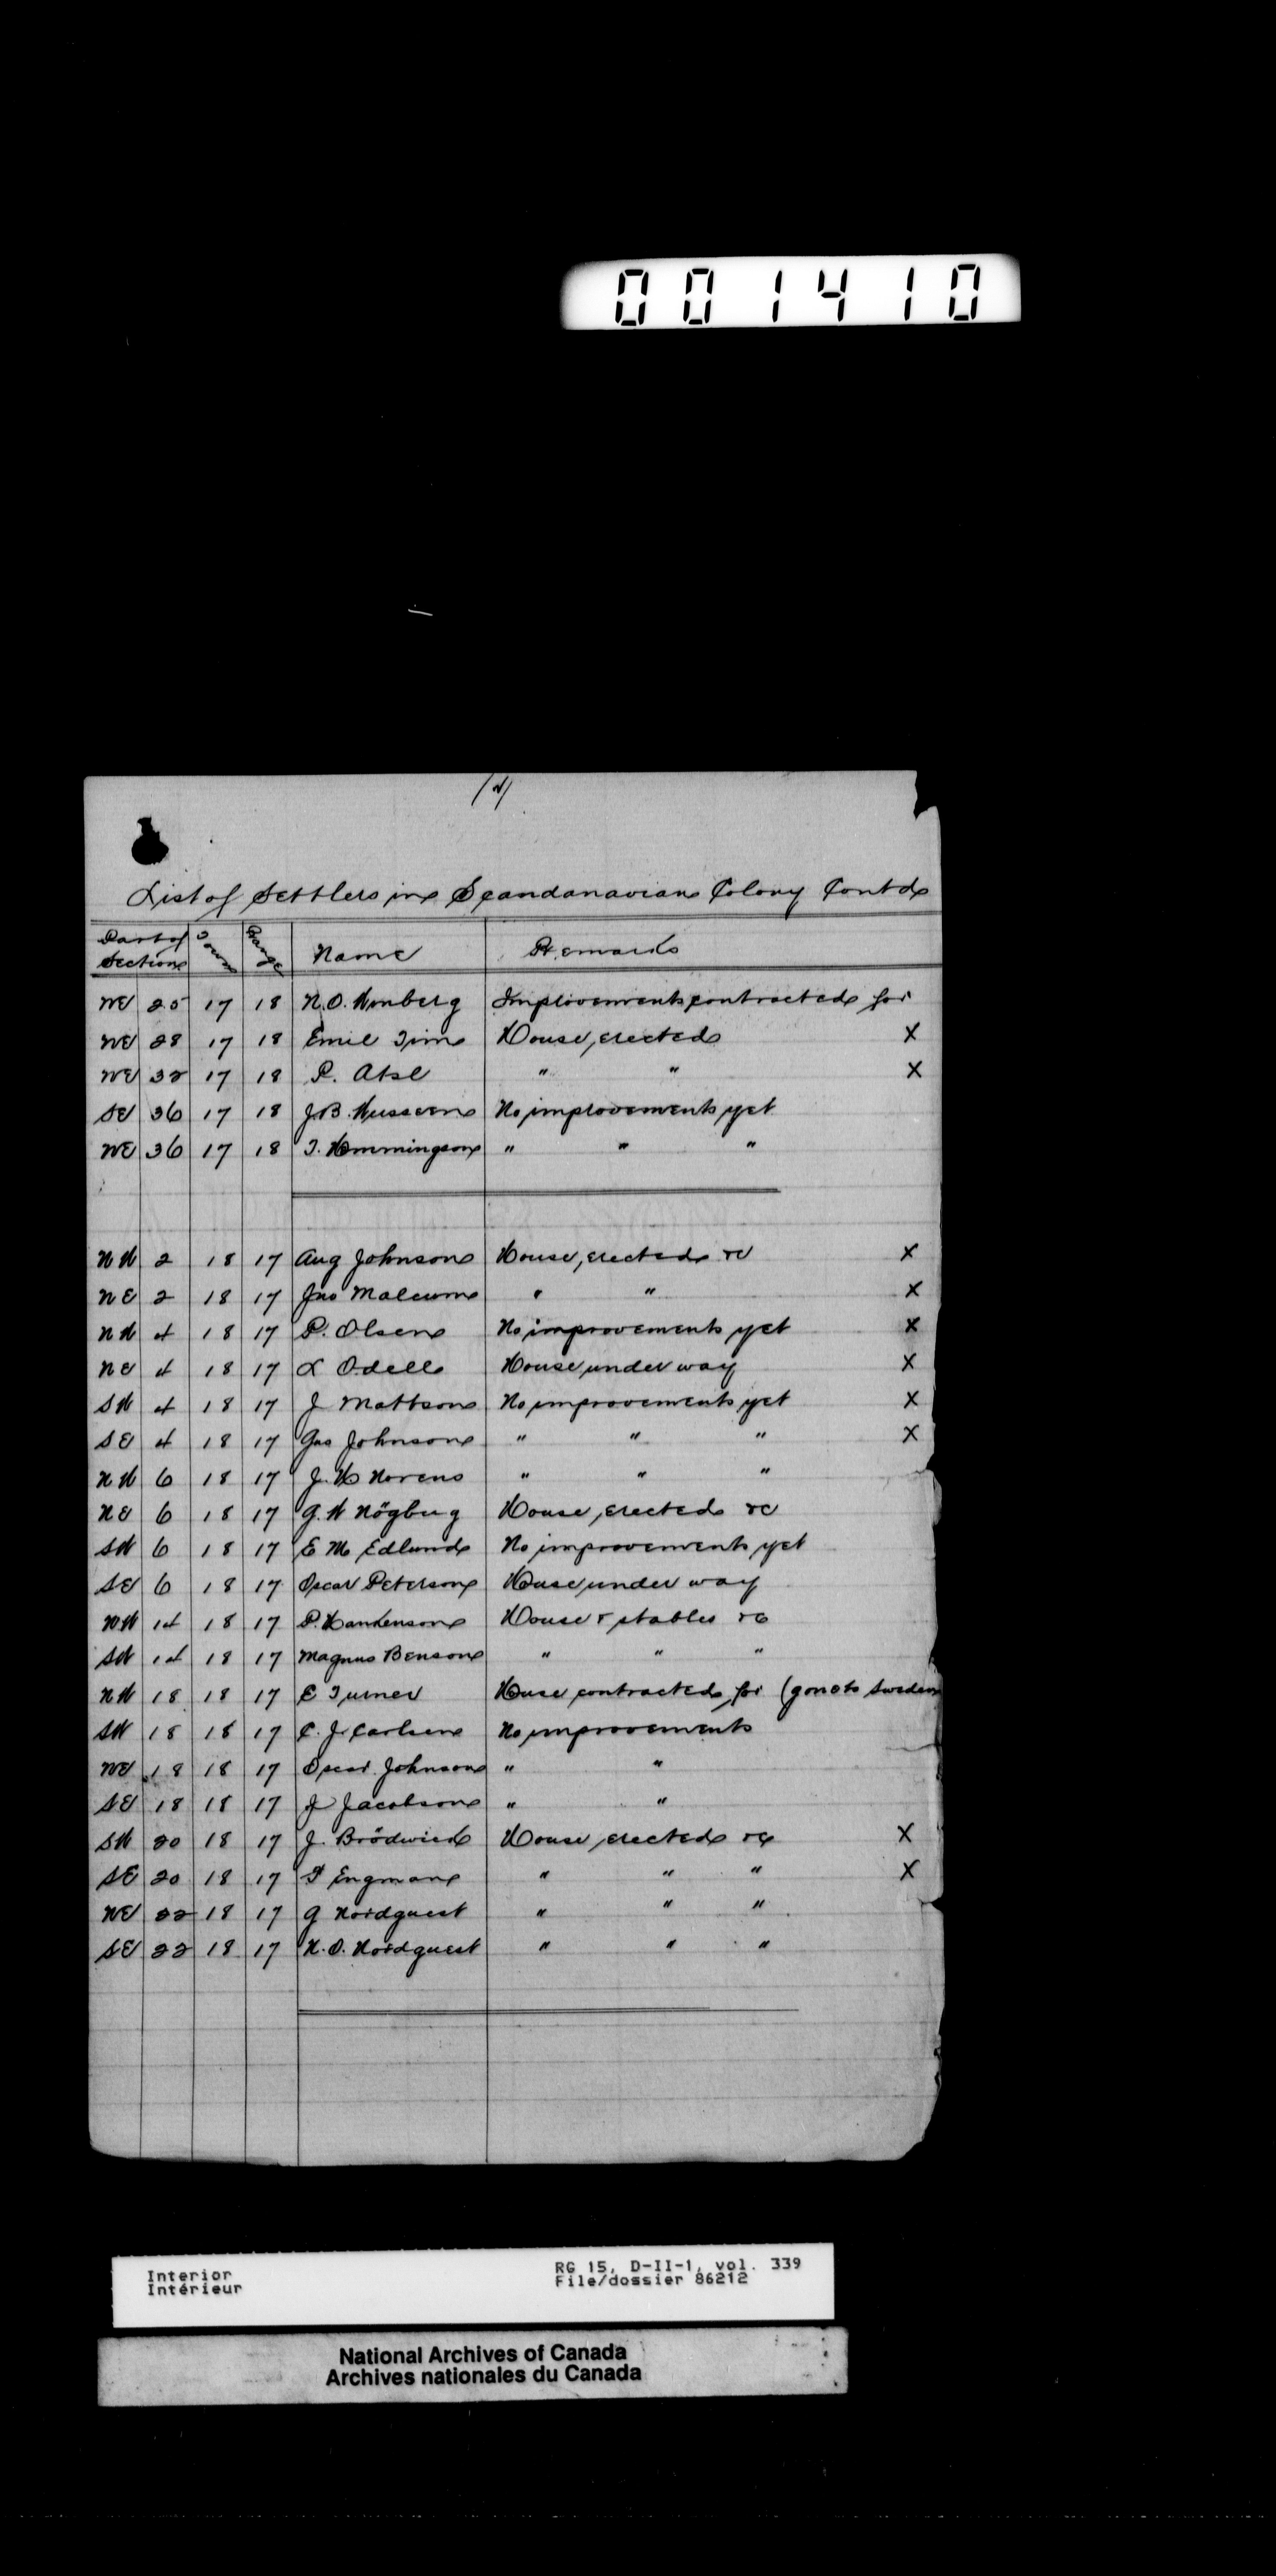 001410
/2/
List of Settlers in Scandanavian Colony Contd
Part of Section Town Range Name Remarks
NE 25 17 18 N.O. Improvements contracted for
NE 28 17 18 Emil House, erected X
NE 32 17 18 P. " " X
SE 36 17 18 J.B. No improvements yet
NE 36 17 18 T. Hemmingson " " "
NW 2 18 17 Aug Johnson House, erected &c X
NE 2 18 17 Jno Malcum " " X
NW 4 18 17 P. Olsen No improvements yet X
NE 4 18 17 L Odell House under way X
SW 4 18 17 J Mattson No improvements yet X
SE 4 18 17 Gas Johnson " " " X
NW 6 18 17 J. H Norens " " "
NE 6 18 17 G. W Högburg House, erected &c
SW 6 18 17 E M Edlund No improvements yet
SE 6 18 17 Oscar Peterson House under way
NW 14 18 17 P. Hankenson House & stables &c
SW 14 18 17 Magnus Benson " " "
NW 18 18 17 E Turner House contracted for (gone to Sweden
SW 18 18 17 C. J. Carlsen No improvements
NE 18 18 17 Oscar Johnson " "
SE 18 18 17 J Jacobson " "
SW 20 18 17 J. House, erected &c X
SE 20 18 17 Engman " " " X
NE 22 18 17 G Nordquest " " "
SE 22 18 17 N.O. Nordquest " " "
Interior RG 15, D-II-1, vol. 339
Intérieur File/dossier 86212
National Archives of Canada
Archives nationales du Canada